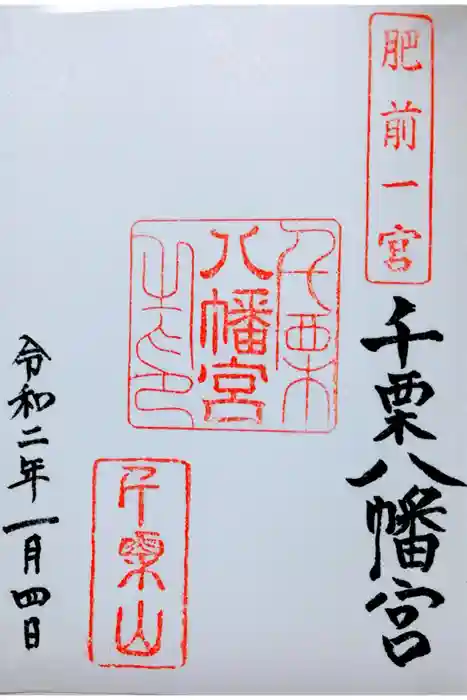 肥前一宮
千栗八幡宮
千栗
八幡宮
之印
千栗山
令和二年一月四日